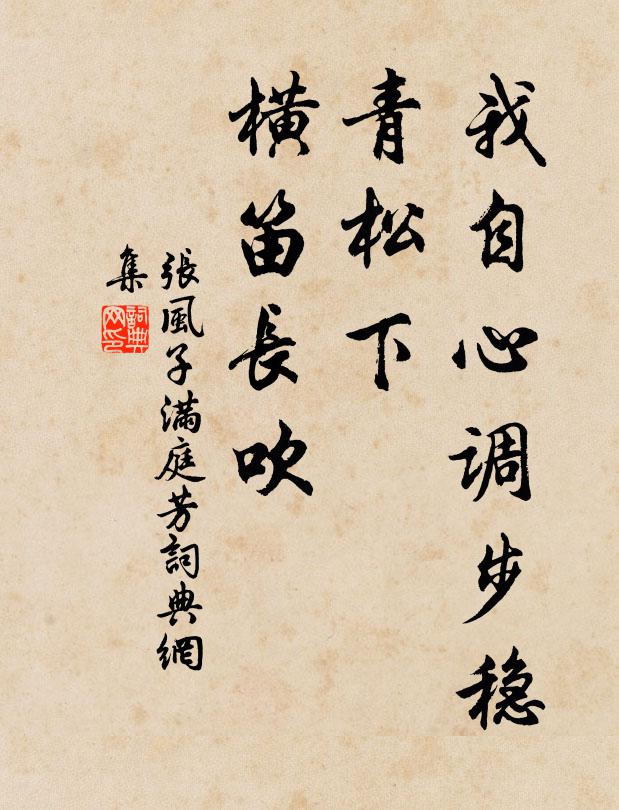 我自心调步稳
青松下
橫笛長吹
張風子滿庭芳詞典網
集
詞典网印